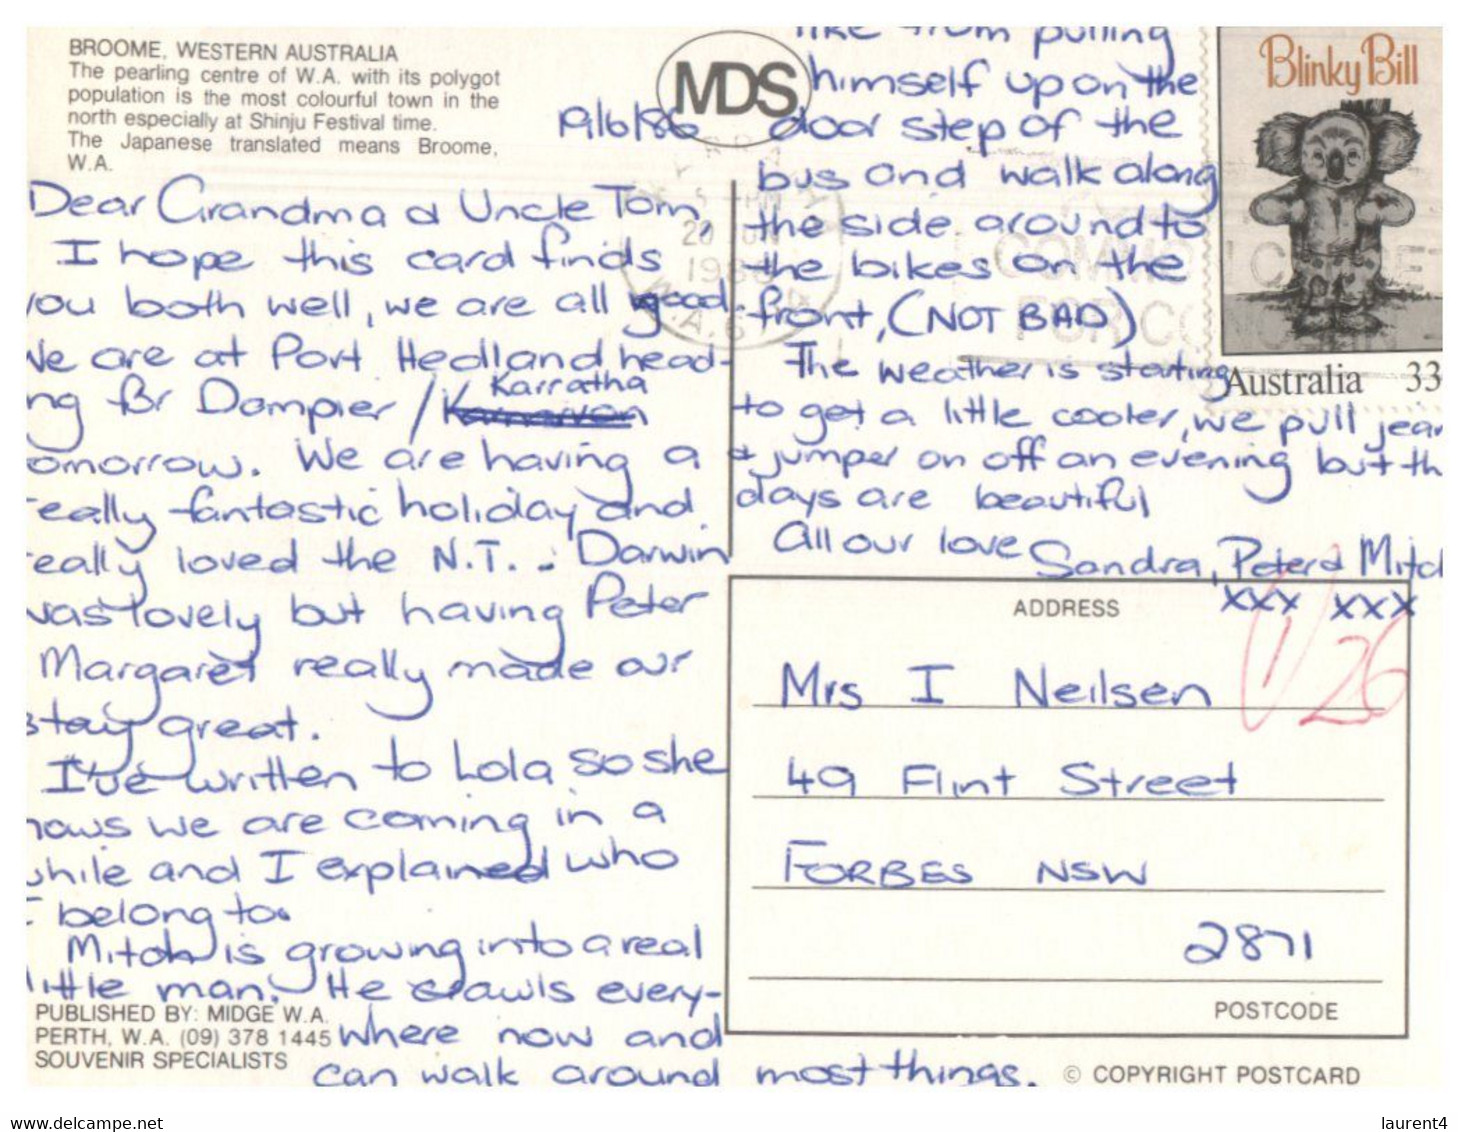 BROOME, WESTERN AUSTRALIA
The pearling centre of W.A. with its polygot
population is the most colourful town in the
north especially at Shinju Festival time.
The Japanese translated means Broome,
W.A.
MDS
19/6/86
Dear Grandma & Uncle Tom,
I hope this card finds
you both well, we are all good.
We are at Port Hedland head-
ng for Dampier / Karratha
omorrow. We are having a
really fantastic holiday and
really loved the N.T. - Darwin
was lovely but having Peter
Margaret really made our
stay great.
I've written to Lola so she
nows we are coming in a
while and I explained who
I belong to.
Mitch is growing into a real
little man. He crawls every-
where now and
can walk around most things.
like from pulling
himself up on the
door step of the
bus and walk along
the side around to
the bikes on the
front, (NOT BAD)
The weather is starting
to get a little cooler, we pull jean
& jumper on off an evening but th
days are beautiful
All our love Sandra, Peter & Mitch
xxx xxx
20 JUN
1986
W.A. 6
Blinky Bill
Australia 33
ADDRESS
Mrs I Neilsen
49 Flint Street
FORBES NSW
2871
POSTCODE
26
PUBLISHED BY: MIDGE W.A.
PERTH, W.A. (09) 378 1445
SOUVENIR SPECIALISTS
© COPYRIGHT POSTCARD
www.delcampe.net
laurent4